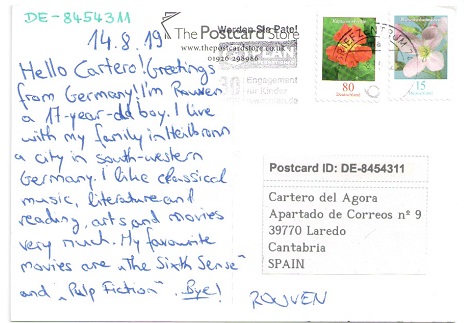 DE-8454311
14.8.19
Werden Sie Pate!
The Postcard Store
www.thepostcardstore.com
01926 298986
PLAN
Engagement
für Kinder
BRIEFZENTRUM
80
Deutschland
15
Deutschland
Hello Cartero! Greetings
from Germany! I'm Rouven
a 17-year-old boy. I live
with my family in Heilbronn
a city in south-western
Germany. I like classical
music, literature and
reading, arts and movies
very much. My favourite
movies are „The Sixth Sense"
and „Pulp Fiction". Bye!
ROUVEN
Postcard ID: DE-8454311
Cartero del Agora
Apartado de Correos nº 9
39770 Laredo
Cantabria
SPAIN